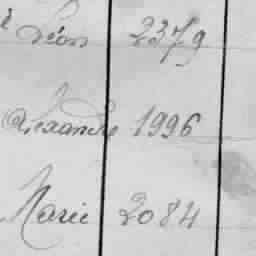 Léon 2379
Alexandre 1996
Marie 2084